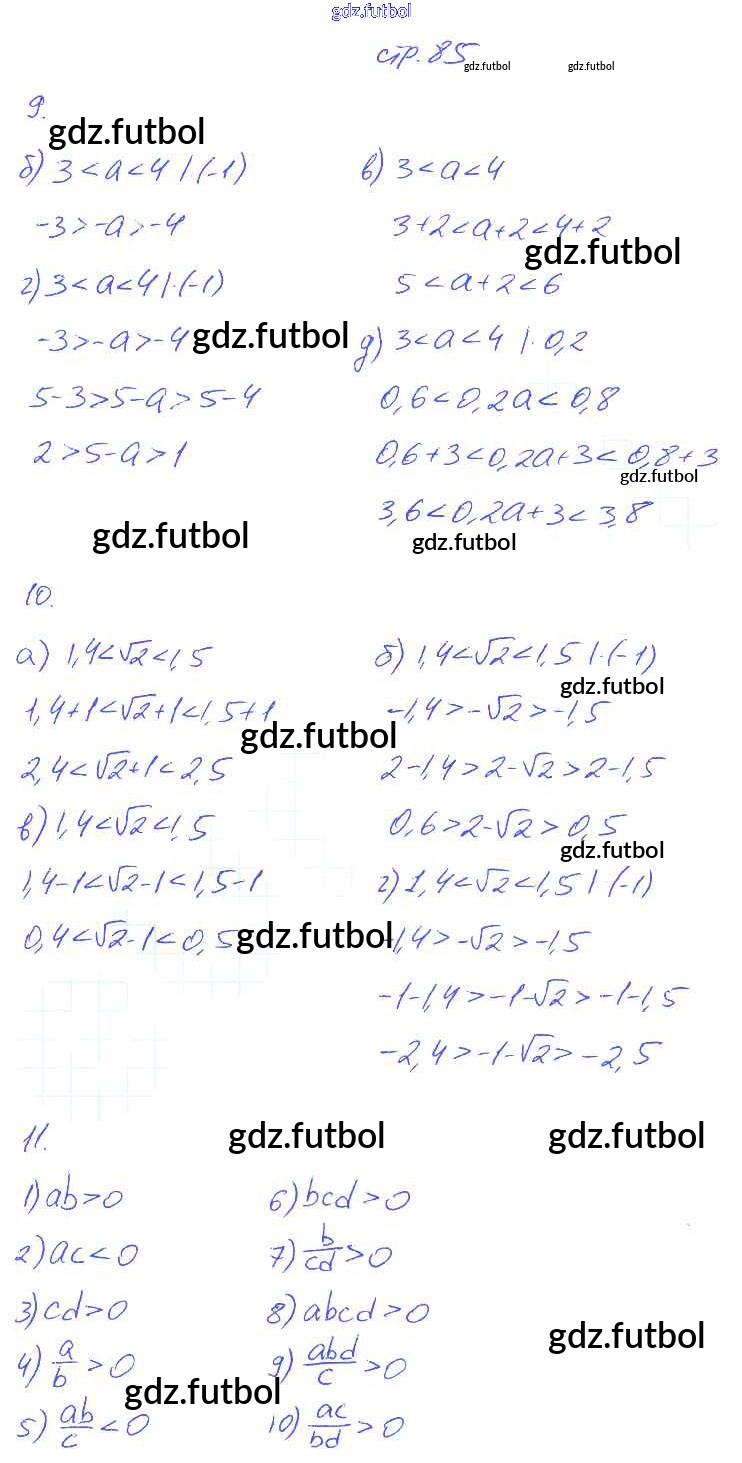 gdz.futbol
стр. 85
gdz.futbol gdz.futbol
9.
gdz.futbol
б) 3 < a < 4 | (-1)
-3 > -a > -4
г) 3 < a < 4 | · (-1)
-3 > -a > -4
gdz.futbol
5-3 > 5-a > 5-4
2 > 5-a > 1
gdz.futbol
в) 3 < a < 4
3+2 < a+2 < 4+2
gdz.futbol
5 < a+2 < 6
д) 3 < a < 4 | · 0,2
0,6 < 0,2a < 0,8
0,6+3 < 0,2a+3 < 0,8+3
gdz.futbol
3,6 < 0,2a+3 < 3,8
gdz.futbol
10.
а) 1,4 < √2 < 1,5
1,4+1 < √2+1 < 1,5+1
gdz.futbol
2,4 < √2+1 < 2,5
в) 1,4 < √2 < 1,5
1,4-1 < √2-1 < 1,5-1
0,4 < √2-1 < 0,5
gdz.futbol
б) 1,4 < √2 < 1,5 | · (-1)
gdz.futbol
-1,4 > -√2 > -1,5
2-1,4 > 2-√2 > 2-1,5
0,6 > 2-√2 > 0,5
gdz.futbol
г) 1,4 < √2 < 1,5 | (-1)
-1,4 > -√2 > -1,5
-1-1,4 > -1-√2 > -1-1,5
-2,4 > -1-√2 > -2,5
11.
gdz.futbol gdz.futbol
1) ab > 0
2) ac < 0
3) cd > 0
4) a/b > 0
gdz.futbol
5) ab/c < 0
6) bcd > 0
7) b/cd > 0
8) abcd > 0
gdz.futbol
9) abd/c > 0
10) ac/bd > 0